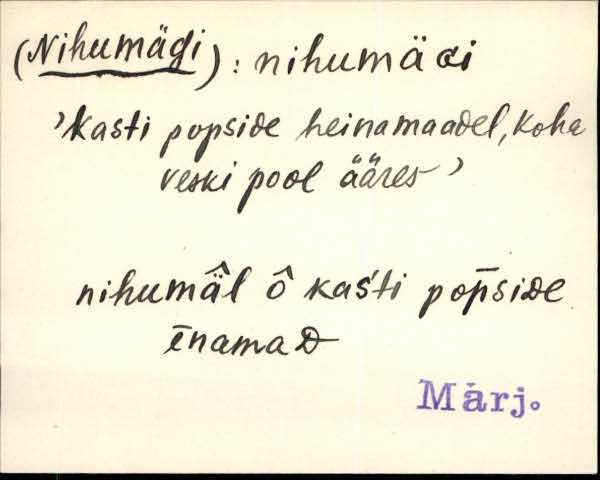 (Nihumägi) : nihumäGi
'Kasti popside heinamaadel, koha
veski pool ääres'
nihumä̂l ô kaśti pop̄side
īnamaD
Märj.